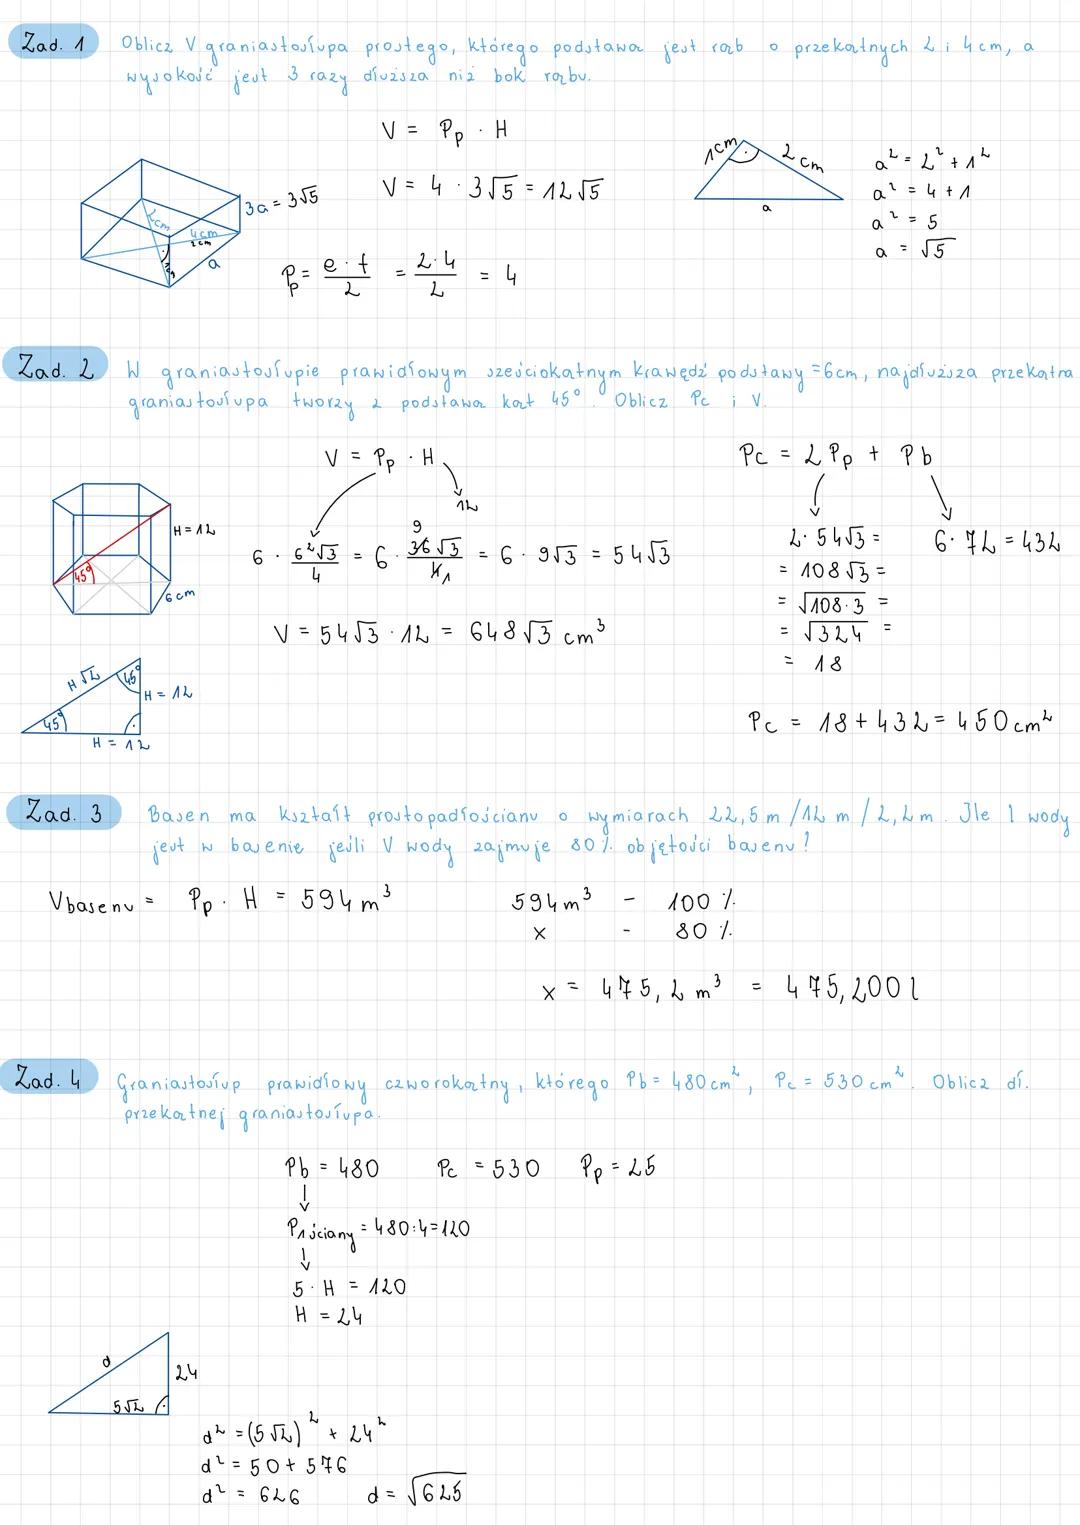 Zad. 1 Oblicz V graniastosłupa prostego, którego podstawą jest romb o przekątnych 2 i 4 cm, a
wysokość jest 3 razy dłuższa niż bok rombu.
V = Pp · H
V = 4 · 3√5 = 12√5
Pp = e·f/2 = 2·4/2 = 4
3a = 3√5
2cm
4cm
2cm
a
1cm
2cm
a
a² = 2² + 1²
a² = 4 + 1
a² = 5
a = √5
Zad. 2 W graniastosłupie prawidłowym sześciokątnym krawędź podstawy = 6cm, najdłuższa przekątna
graniastosłupa tworzy z podstawą kąt 45°. Oblicz Pc i V.
V = Pp · H
12
6 · 6²√3/4 = 6 · 36√3/4 = 6 · 9√3 = 54√3
9
1
V = 54√3 · 12 = 648√3 cm³
H = 12
45°
6cm
H√2
45°
H = 12
45°
H = 12
Pc = 2Pp + Pb
2 · 54√3 =
6 · 72 = 432
= 108√3 =
= √108·3 =
= √324 =
= 18
Pc = 18 + 432 = 450 cm²
Zad. 3 Basen ma kształt prostopadłościanu o wymiarach 22,5 m / 12 m / 2,2 m. Ile l wody
jest w basenie jeśli V wody zajmuje 80% objętości basenu?
Vbasenu = Pp · H = 594 m³
594 m³ - 100 %
x - 80 %
x = 475,2 m³ = 475,200 l
Zad. 4 Graniastosłup prawidłowy czworokątny, którego Pb = 480 cm², Pc = 530 cm². Oblicz dł.
przekątnej graniastosłupa.
Pb = 480 Pc = 530 Pp = 25
P1ściany = 480:4 = 120
5 · H = 120
H = 24
d
24
5√2
d² = (5√2)² + 24²
d² = 50 + 576
d² = 626 d = √625